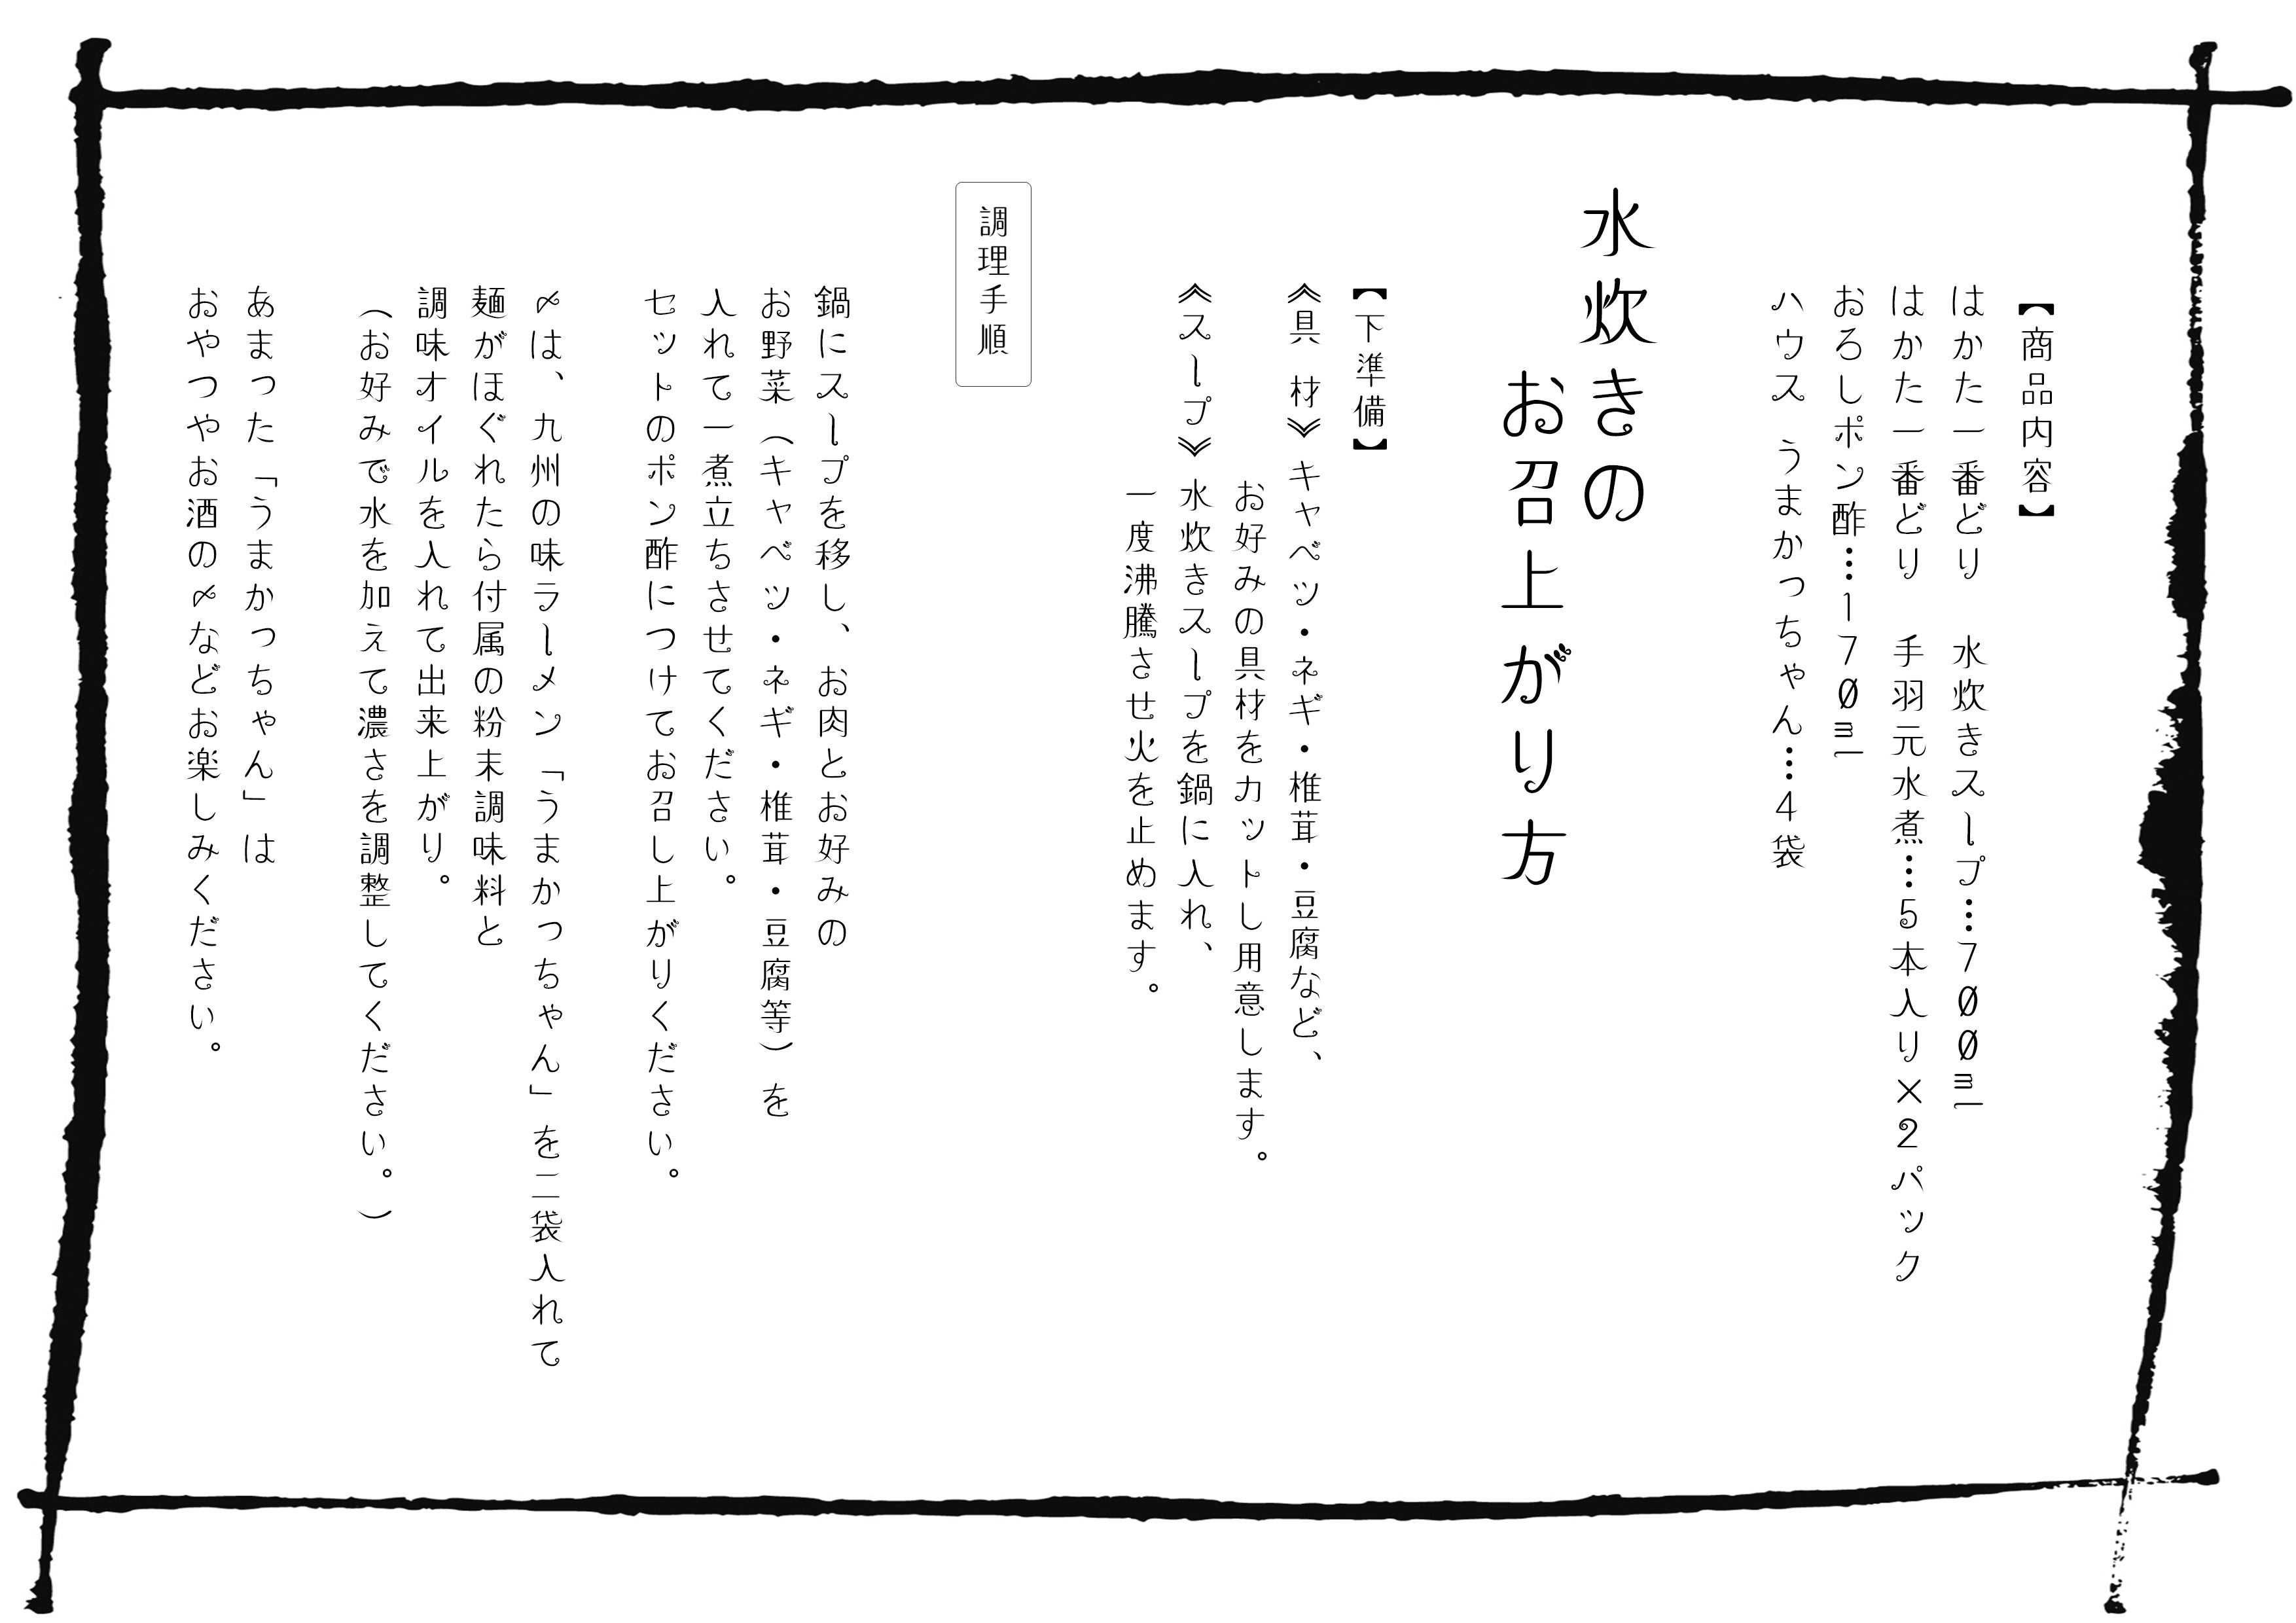 【商品内容】
はかた一番どり　水炊きスープ…700ml
はかた一番どり　手羽元水煮…5本入り×2パック
おろしポン酢…170ml
ハウス うまかっちゃん…4袋
水炊きの
お召上がり方
【下準備】
《具 材》キャベツ・ネギ・椎茸・豆腐など、
お好みの具材をカットし用意します。
《スープ》水炊きスープを鍋に入れ、
一度沸騰させ火を止めます。
調理手順
鍋にスープを移し、お肉とお好みの
お野菜（キャベツ・ネギ・椎茸・豆腐等）を
入れて一煮立ちさせてください。
セットのポン酢につけてお召し上がりください。
〆は、九州の味ラーメン「うまかっちゃん」を二袋入れて
麺がほぐれたら付属の粉末調味料と
調味オイルを入れて出来上がり。
（お好みで水を加えて濃さを調整してください。）
あまった「うまかっちゃん」は
おやつやお酒の〆などお楽しみください。